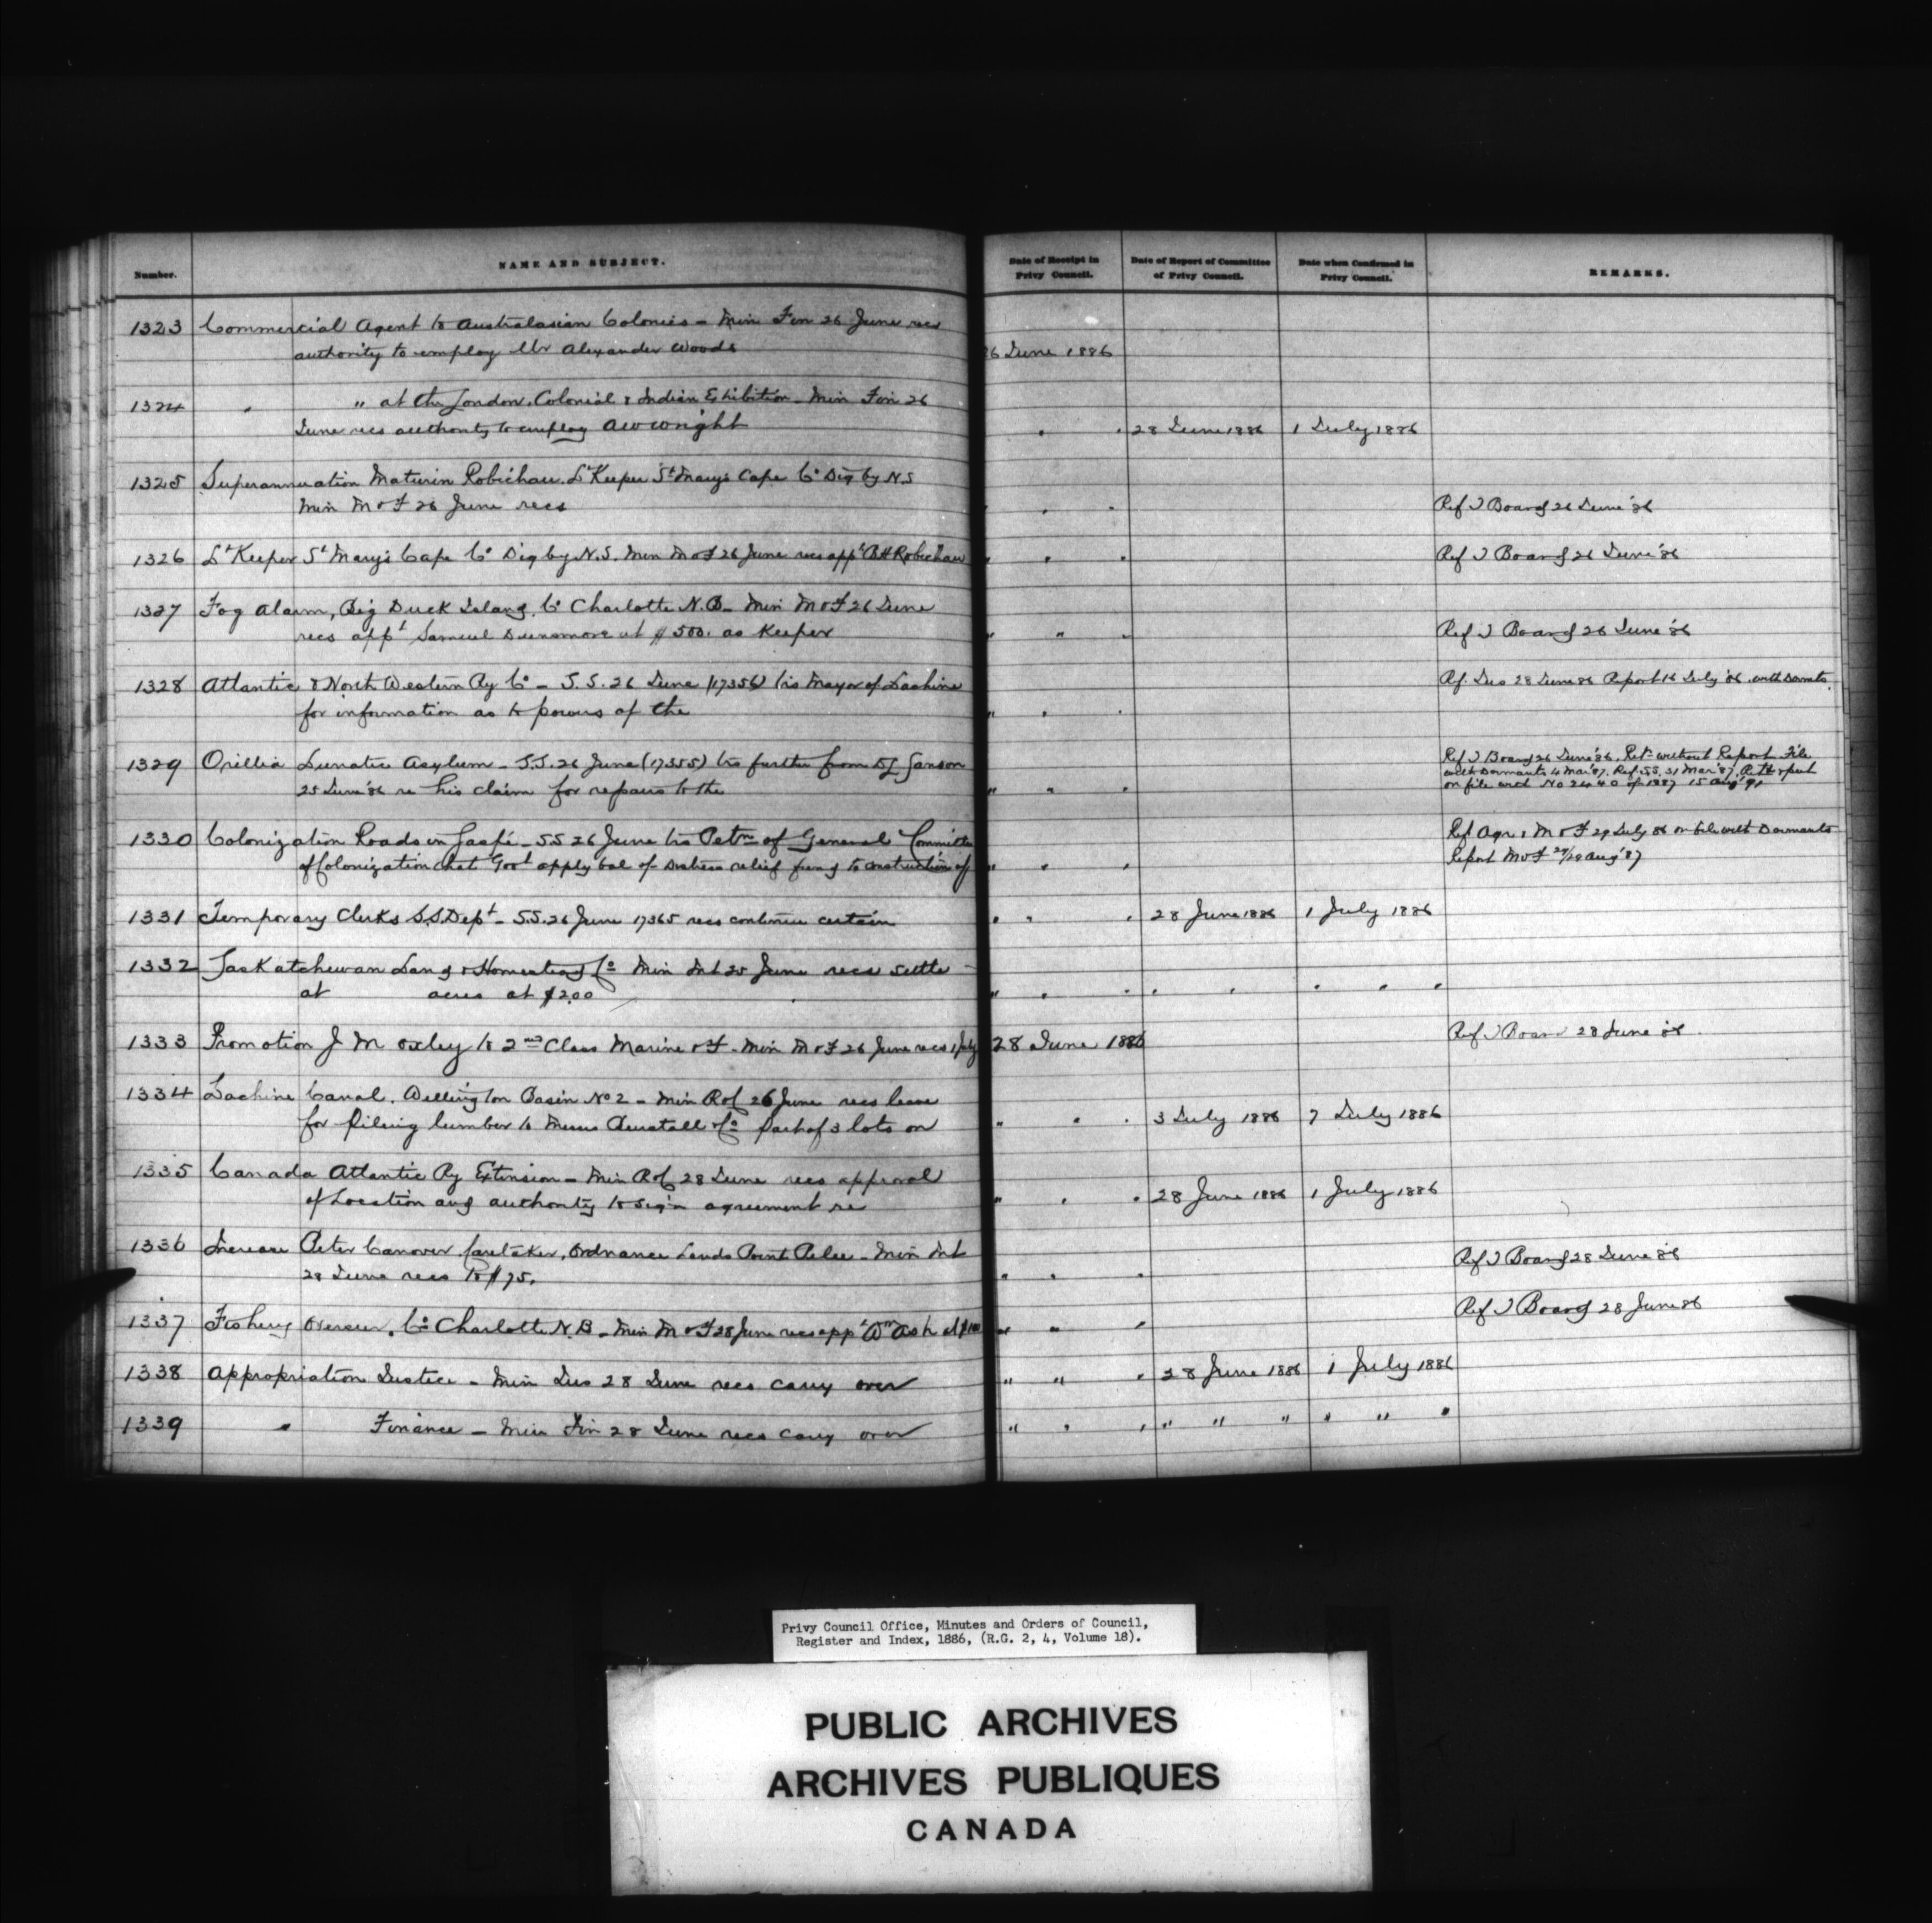 Number.
NAME AND SUBJECT.
Date of Receipt in Privy Council.
Date of Report of Committee of Privy Council.
Date when Confirmed in Privy Council.
REMARKS.
1323 Commercial Agent to Australasian Colonies - Min Fin 26 June recs
authority to employ Mr Alexander Woods 26 June 1886
1324 " " at the London, Colonial & Indian Exhibition - Min Fin 26
June recs authority to employ AW Wright " " 28 June 1886 1 July 1886
1325 Superannuation Maturin Robichau. Lt Keeper St Mary's Cape Co Digby N.S
Min M & F 26 June recs " " " Ref T Board 26 June '86
1326 Lt Keeper St Mary's Cape Co Digby N.S. Min M & F 26 June recs appt BH Robichau " " " Ref T Board 26 June '86
1327 Fog Alarm, Big Duck Island, Co Charlotte N.B - Min M & F 26 June
recs appt Samuel Dunsmore at $500. as Keeper " " " Ref T Board 26 June '86
1328 Atlantic & North Western Ry Co - S.S. 26 June (17356) trs Mayor of Lachine Ref. Jus 28 June 86 Report 16 July '86. with Dormts.
for information as to powers of the " " "
1329 Orillia Lunatic Asylum - S.S. 26 June (17355) trs further from Sanson Ref T Board 26 June '86. Retd without Report File
25 June '86 re his claim for repairs to the " " " with Dormants 4 Mar '87. Ref. S.S. 31 Mar '87.
on file with No 2440 of 1887 15 Aug
1330 Colonization Roads in Gaspé - S.S 26 June trs Petn of General Committee Ref Agr & M & F 29 July 86 on file with Dormants
of Colonization that Govt apply bal of distress relief fund to construction of " " " Report M & F 27/29 Aug '87
1331 Temporary Clerks S.S. Dept - S.S. 26 June 17365 recs continue certain " " " 28 June 1886 1 July 1886
1332 Saskatchewan Land & Homestead Co Min Int 25 June recs settle -
at acres at $2.00 " " " " " " " "
1333 Promotion J M Oxley to 2nd Class Marine & F - Min M & F 26 June recs 1 July 28 June 1886 Ref T Board 28 June '86.
1334 Lachine Canal. Wellington Basin No 2 - Min R&C 26 June recs lease
for Piling lumber to Messrs & Co part of 3 lots on " " " 3 July 1886 7 July 1886
1335 Canada Atlantic Ry Extension - Min R&C 28 June recs approval
of Location and authority to sign agreement re " " " 28 June 1886 1 July 1886
1336 Increase Peter Canover Caretaker, Ordnance Lands Point Pelee - Min Int Ref T Board 28 June '86
28 June recs to $75. " " "
1337 Fishery Overseer. Co Charlotte N.B - Min M & F 28 June recs appt Wm Ash at $100 " " " Ref T Board 28 June 86
1338 Appropriation Justice - Min Jus 28 June recs carry over " " " 28 June 1886 1 July 1886
1339 " Finance - Min Fin 28 June recs carry over " " " " " " " " "
Privy Council Office, Minutes and Orders of Council,
Register and Index, 1886, (R.G. 2, 4, Volume 18).
PUBLIC ARCHIVES
ARCHIVES PUBLIQUES
CANADA